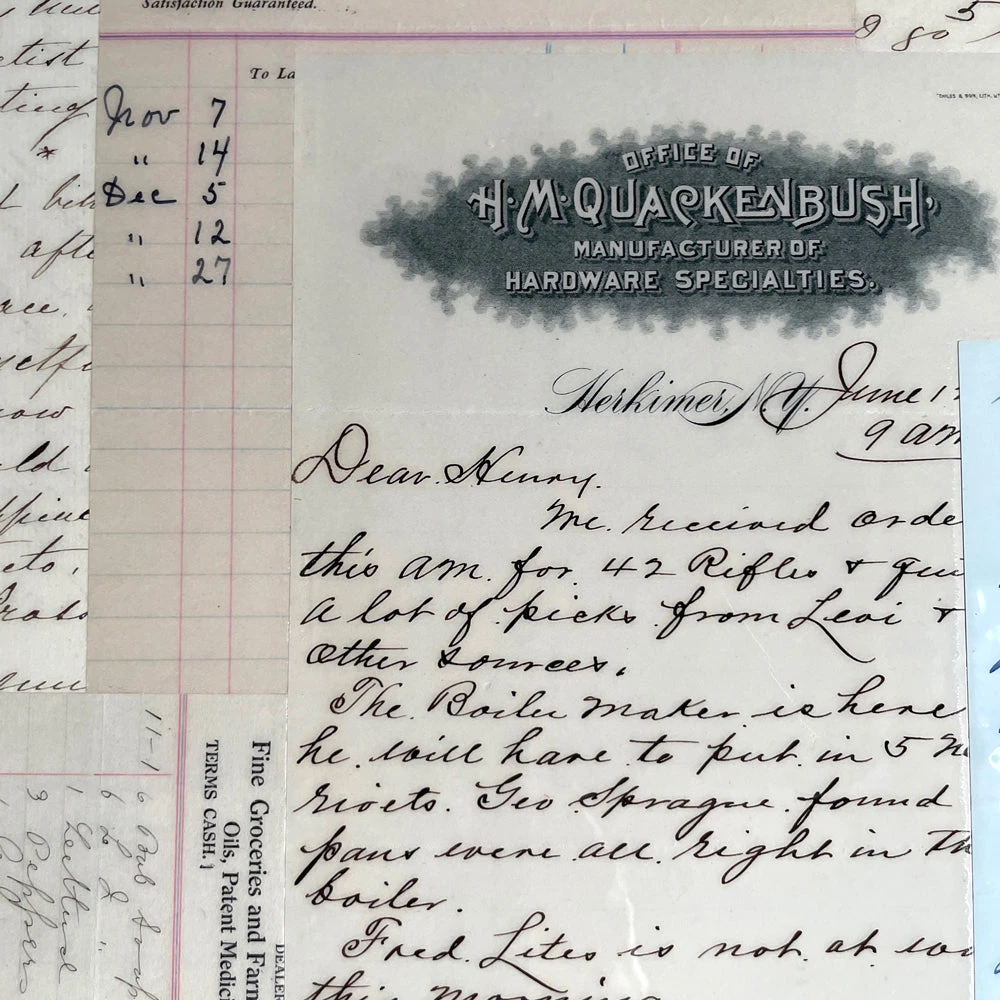 Satisfaction Guaranteed.
5
80
tist
To La
ting
Nov 7
" 14
Dec 5
" 12
" 27
afte
ow
ld
eto,
OFFICE OF
H·M·QUACKENBUSH,
MANUFACTURER OF
HARDWARE SPECIALTIES.
Herkimer, N.Y. June 1
9 am
Dear Henry.
We received orde
this am. for 42 Rifles + qui
a lot of picks from Levi +
other sources.
The Boiler maker is here
he will have to put in 5 ne
rivets. Geo Sprague found
pans were all right in th
boiler.
Fred Lites is not at wo
this morning
DEALER
Fine Groceries and Farm
Oils, Patent Medici
TERMS CASH.
11-1
6 Bub Soap
6 L
1 Lettuce
3 Peppers